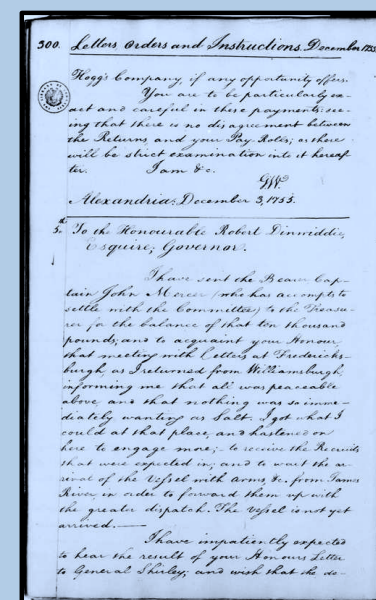 300. Letters, Orders and Instructions. December 1755.
Hogg's Company, if any opportunity offers.
You are to be particularly ex-
act and careful in these payments: see-
ing that there is no disagreement between
the Returns, and your Pay-Rolls; as there
will be strict examination into it hereaf-
ter. I am &c.
GW.
Alexandria; December 3, 1755.
5.th To the Honourable Robert Dinwiddie,
Esquire; Governor.
I have sent the Bearer Cap-
tain John Mercer (who has accompts to
settle with the Committee) to the Treasu-
rer for the balance of that ten thousand
pounds; and to acquaint your Honour,
that meeting with Letters at Fredericks-
burgh, as I returned from Williamsburgh,
informing me that all was peaceable
above, and that nothing was so imme-
diately wanting as Salt. I got what I
could at that place, and hastened on
here to engage more; to receive the Recruits
that were expected in; and to wait the ar-
rival of the Vessel with arms, &c. from James
River, in order to forward them up with
the greater dispatch. The Vessel is not yet
arrived.
I have impatiently expected
to hear the result of your Honours Letter
to General Shirley; and wish that the de-